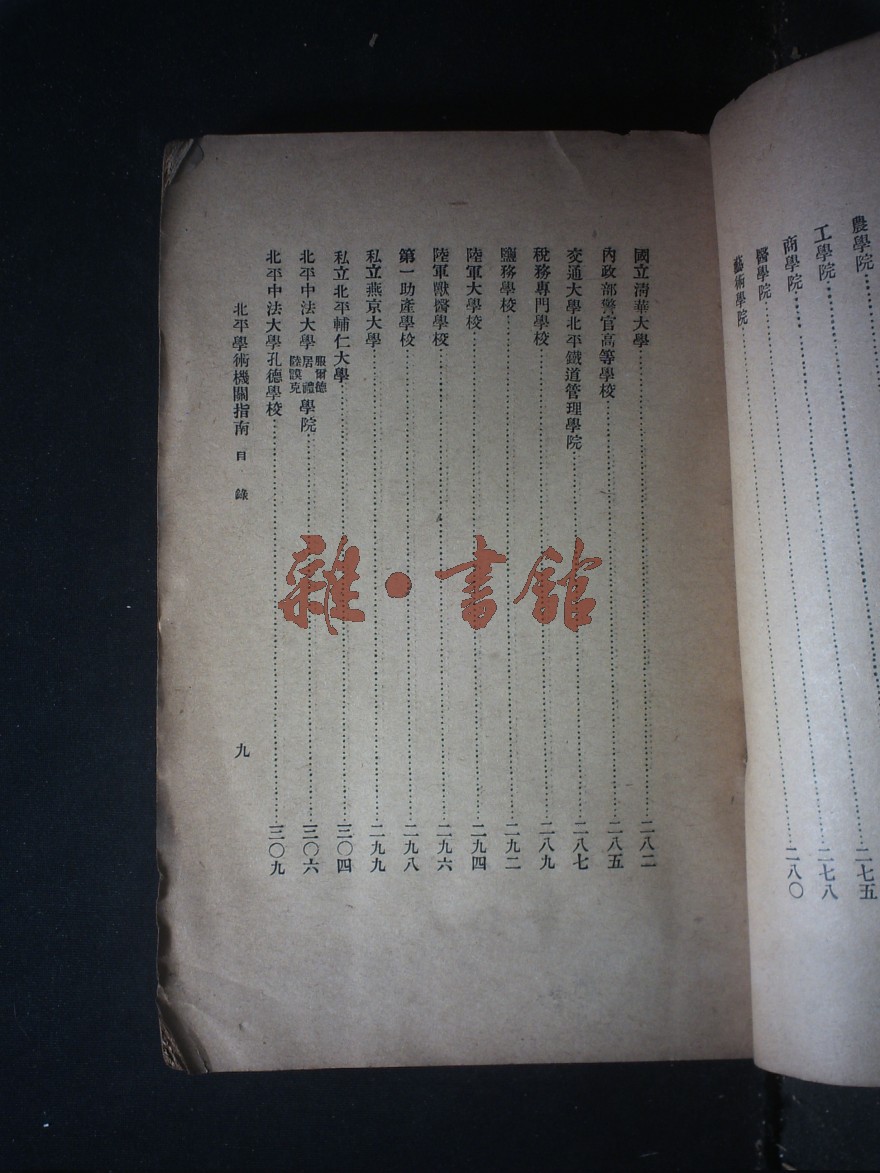 農學院……二七五
工學院……二七八
商學院……二八〇
醫學院
藝術學院
國立清華大學……二八二
內政部警官高等學校……二八五
交通大學北平鐵道管理學院……二八七
稅務專門學校……二八九
鹽務學校……二九二
陸軍大學校……二九四
陸軍獸醫學校……二九六
第一助產學校……二九八
私立燕京大學……二九九
私立北平輔仁大學……三〇四
北平中法大學服爾德居禮陸謨克學院……三〇六
北平中法大學孔德學校……三〇九
北平學術機關指南 目錄 九
雜·書館